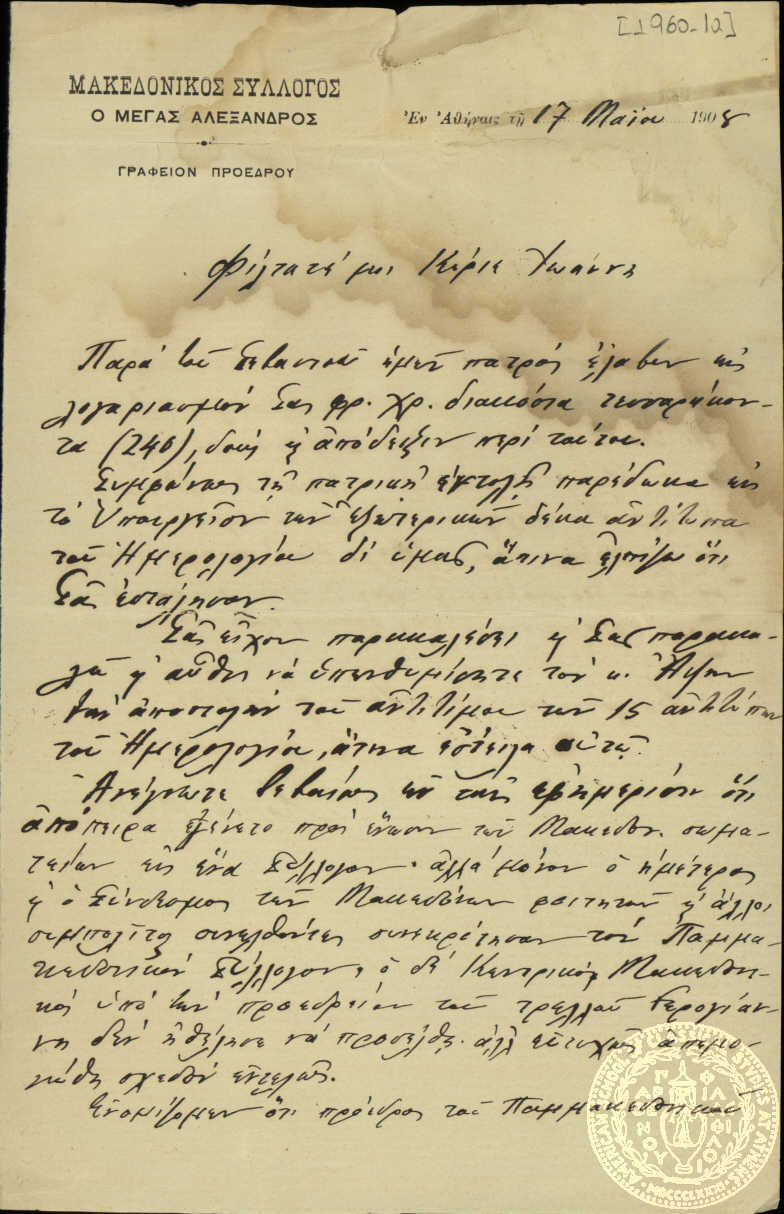 [1960-12]
ΜΑΚΕΔΟΝΙΚΟΣ ΣΥΛΛΟΓΟΣ
Ο ΜΕΓΑΣ ΑΛΕΞΑΝΔΡΟΣ
Ἐν Ἀθήναις τῇ 17 Μαΐου 1908
ΓΡΑΦΕΙΟΝ ΠΡΟΕΔΡΟΥ
Φίλτατέ μοι Κύριε Ἰωάννη
Παρὰ τοῦ σεβαστοῦ ἡμῶν πατρὸς ἔλαβον εἰς
λογαριασμόν Σας φρ. χρ. διακόσια τεσσαράκον-
τα (240), δοὺς ἀπόδειξιν περὶ τούτου.
Συμφώνως τῇ πατρικῇ ἐντολῇ παρέδωκα εἰς
τὸ Ὑπουργεῖον τῶν Ἐξωτερικῶν δέκα ἀντίτυπα
τοῦ Ἡμερολογίου δι' ὑμᾶς, ἅτινα ἐλπίζω ὅτι
Σᾶς ἐστάλησαν.
Σᾶς εἶχον παρακαλέσει κ' Σᾶς παρακα-
λῶ κ' αὖθις νὰ ὑπενθυμίσητε τὸν κ.
τὴν ἀποστολὴν τοῦ ἀντιτίμου τῶν 15 ἀντιτύπων
τοῦ Ἡμερολογίου, ἅτινα ἔστειλα αὐτῷ.
Ἀνέγνωτε βεβαίως ἐν ταῖς ἐφημερίσιν ὅτι
ἀπόπειρα ἐγένετο πρὸς ἕνωσιν τῶν Μακεδον. σωμα-
τείων εἰς ἕνα Σύλλογον· ἀλλὰ μόνον ὁ ἡμέτερος
κ' ὁ Σύνδεσμος τῶν Μακεδόνων φοιτητῶν κ' ἄλλοι
συμπολῖται συνελθόντες συνεκρότησαν τὸν Παμμα-
κεδονικὸν Σύλλογον, ὁ δὲ Κεντρικὸς Μακεδονι-
κὸς ὑπὸ τὴν προεδρείαν τοῦ τρελλοῦ Γερογιάν-
νη δὲν ἠθέλησε νὰ προσέλθῃ· ἀλλ' εὐτυχῶς ἀπεμο-
νώθη σχεδὸν ἐντελῶς.
Ἐνομίζομεν ὅτι πρόεδρος τοῦ Παμμακεδονικοῦ
AMERICAN SCHOOL OF CLASSICAL STUDIES AT ATHENS
MDCCCLXXXI